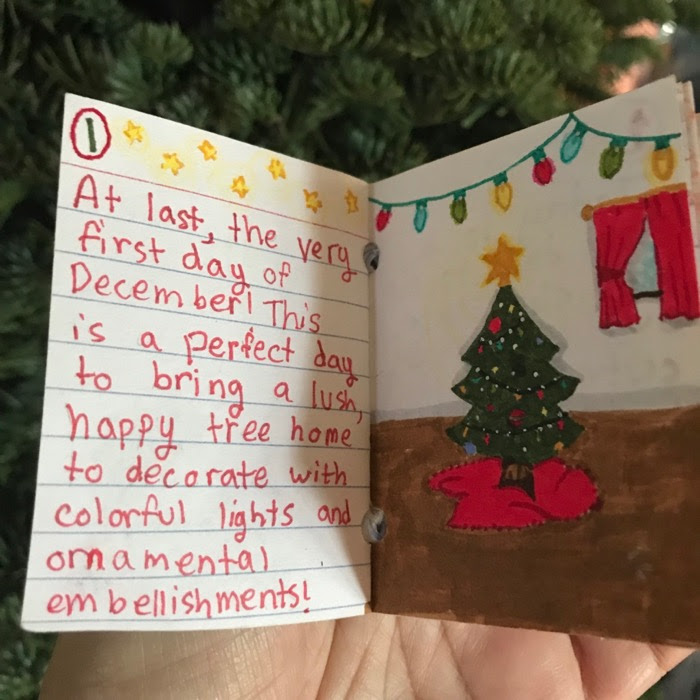 1
At last, the very
first day of
December! This
is a perfect day
to bring a lush,
happy tree home
to decorate with
colorful lights and
ornamental
embellishments!